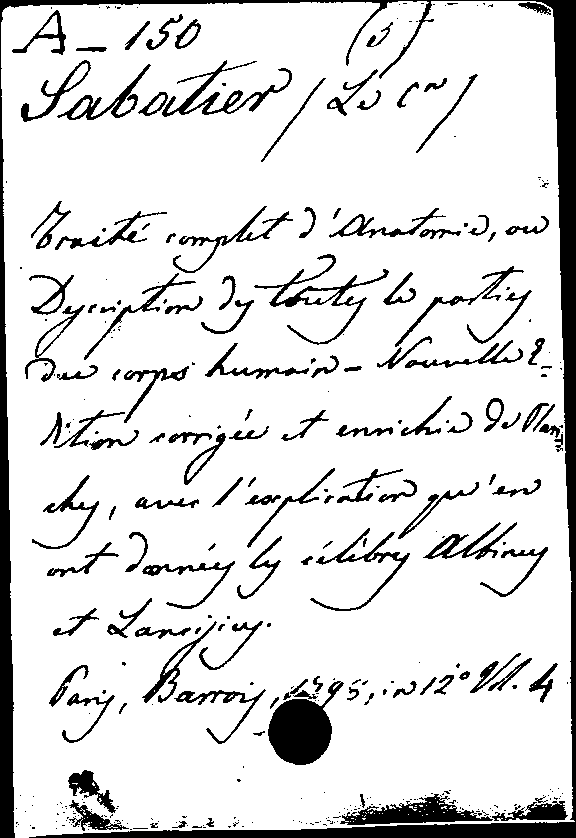 A - 150 (5)
Sabatier / Le Cen /
Traité complet d'Anatomie, ou
Description des toutes le parties
due corps humain - Nouvelle E-
dition corrigée et enrichie de Plan-
ches, avec l'explication qu'en
ont données les célèbres Albinus
et Lancisius.
Paris, Barrois, 1795, in 12° Vol. 4